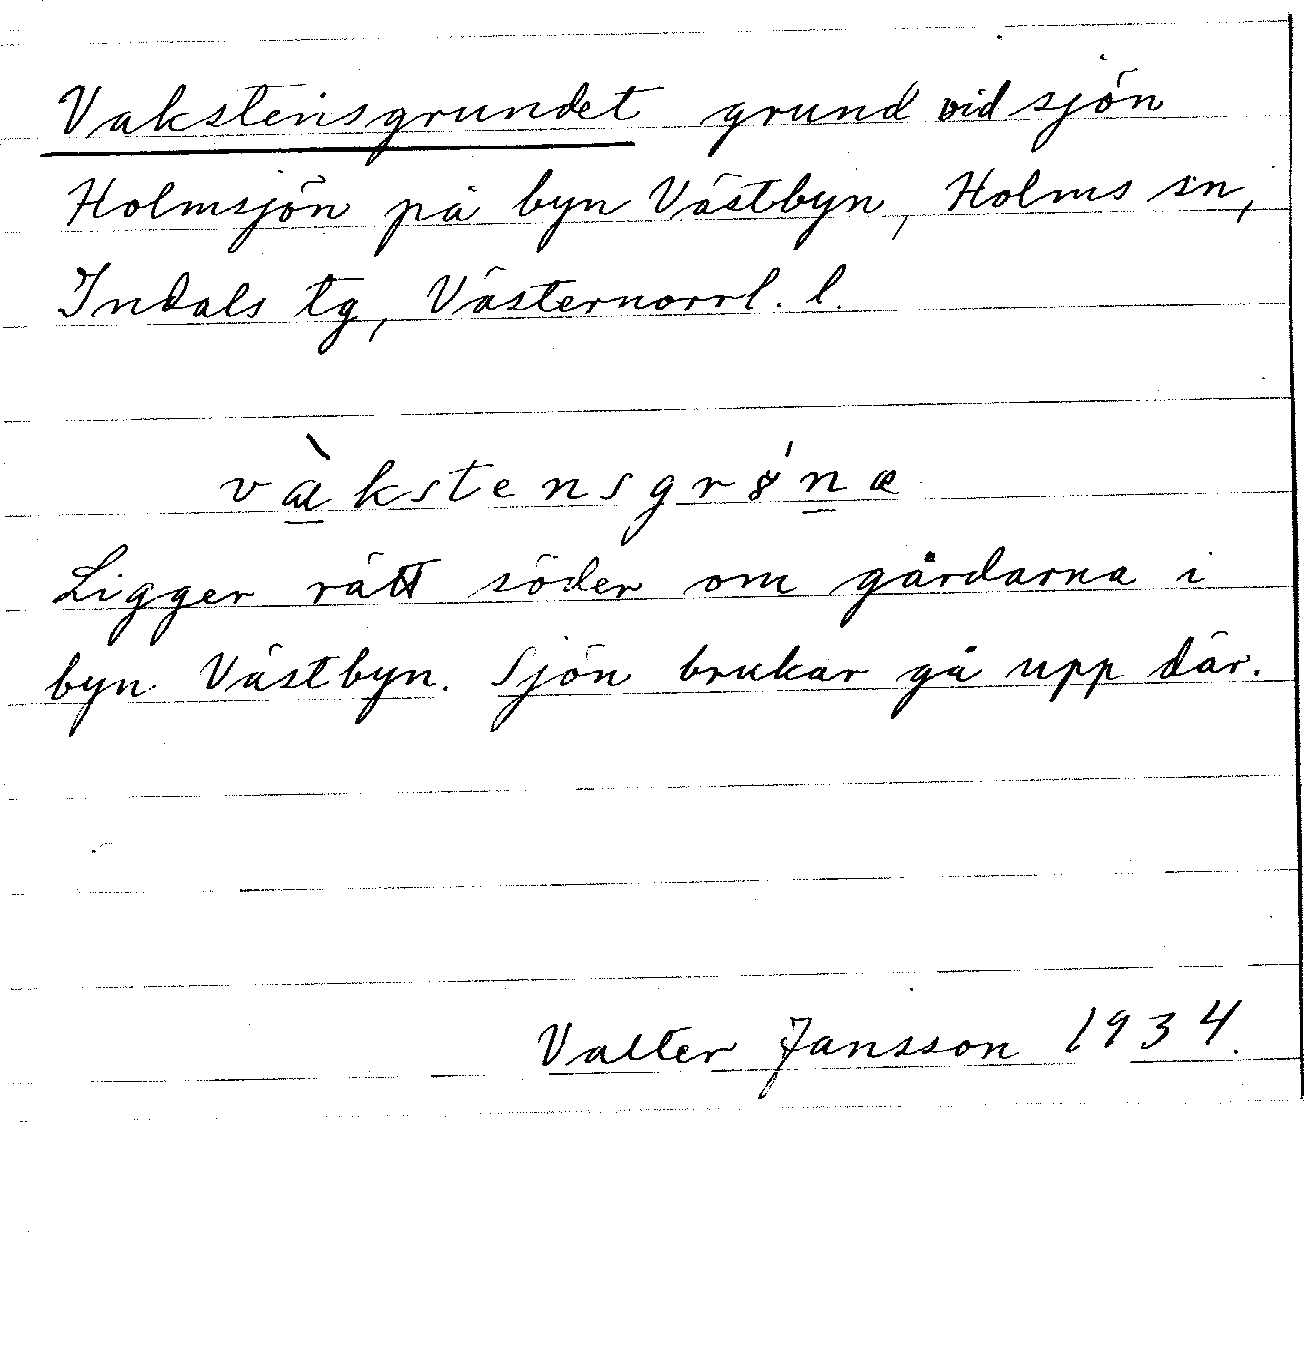 Vakstensgrundet grund vid sjön
Holmsjön på byn Västbyn, Holms sn,
Indals tg, Västernorrl. l.
Ligger rätt söder om gårdarna i
byn Västbyn. Sjön brukar gå upp där.
Valter Jansson 1934.